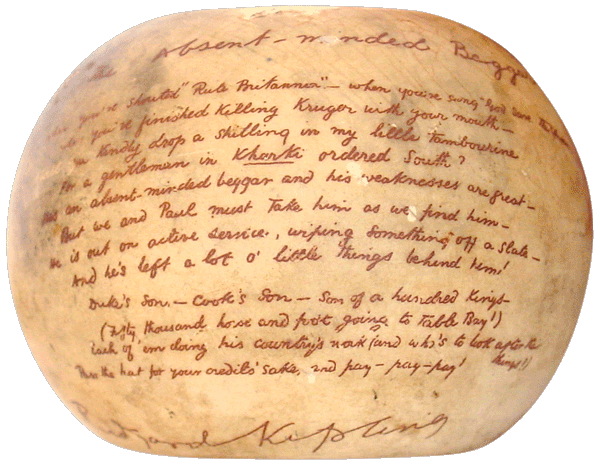 The Absent-minded Begg
you've shouted "Rule Britannia" – when you've sung "God save the Queen"
you've finished killing Kruger with your mouth –
you kindly drop a shilling in my little tambourine
For a gentleman in Kharki ordered South?
He's an absent-minded beggar and his weaknesses are great –
But we and Paul must take him as we find him –
He is out on active service, wiping something off a slate –
And he's left a lot o' little things behind him!
Duke's son – Cook's son – Son of a hundred Kings –
(Fifty thousand horse and foot going to Table Bay!)
Each of 'em doing his country's work (and who's to look after the
things?)
Pass the hat for your credit's sake, and pay – pay – pay!
Rudyard Kipling